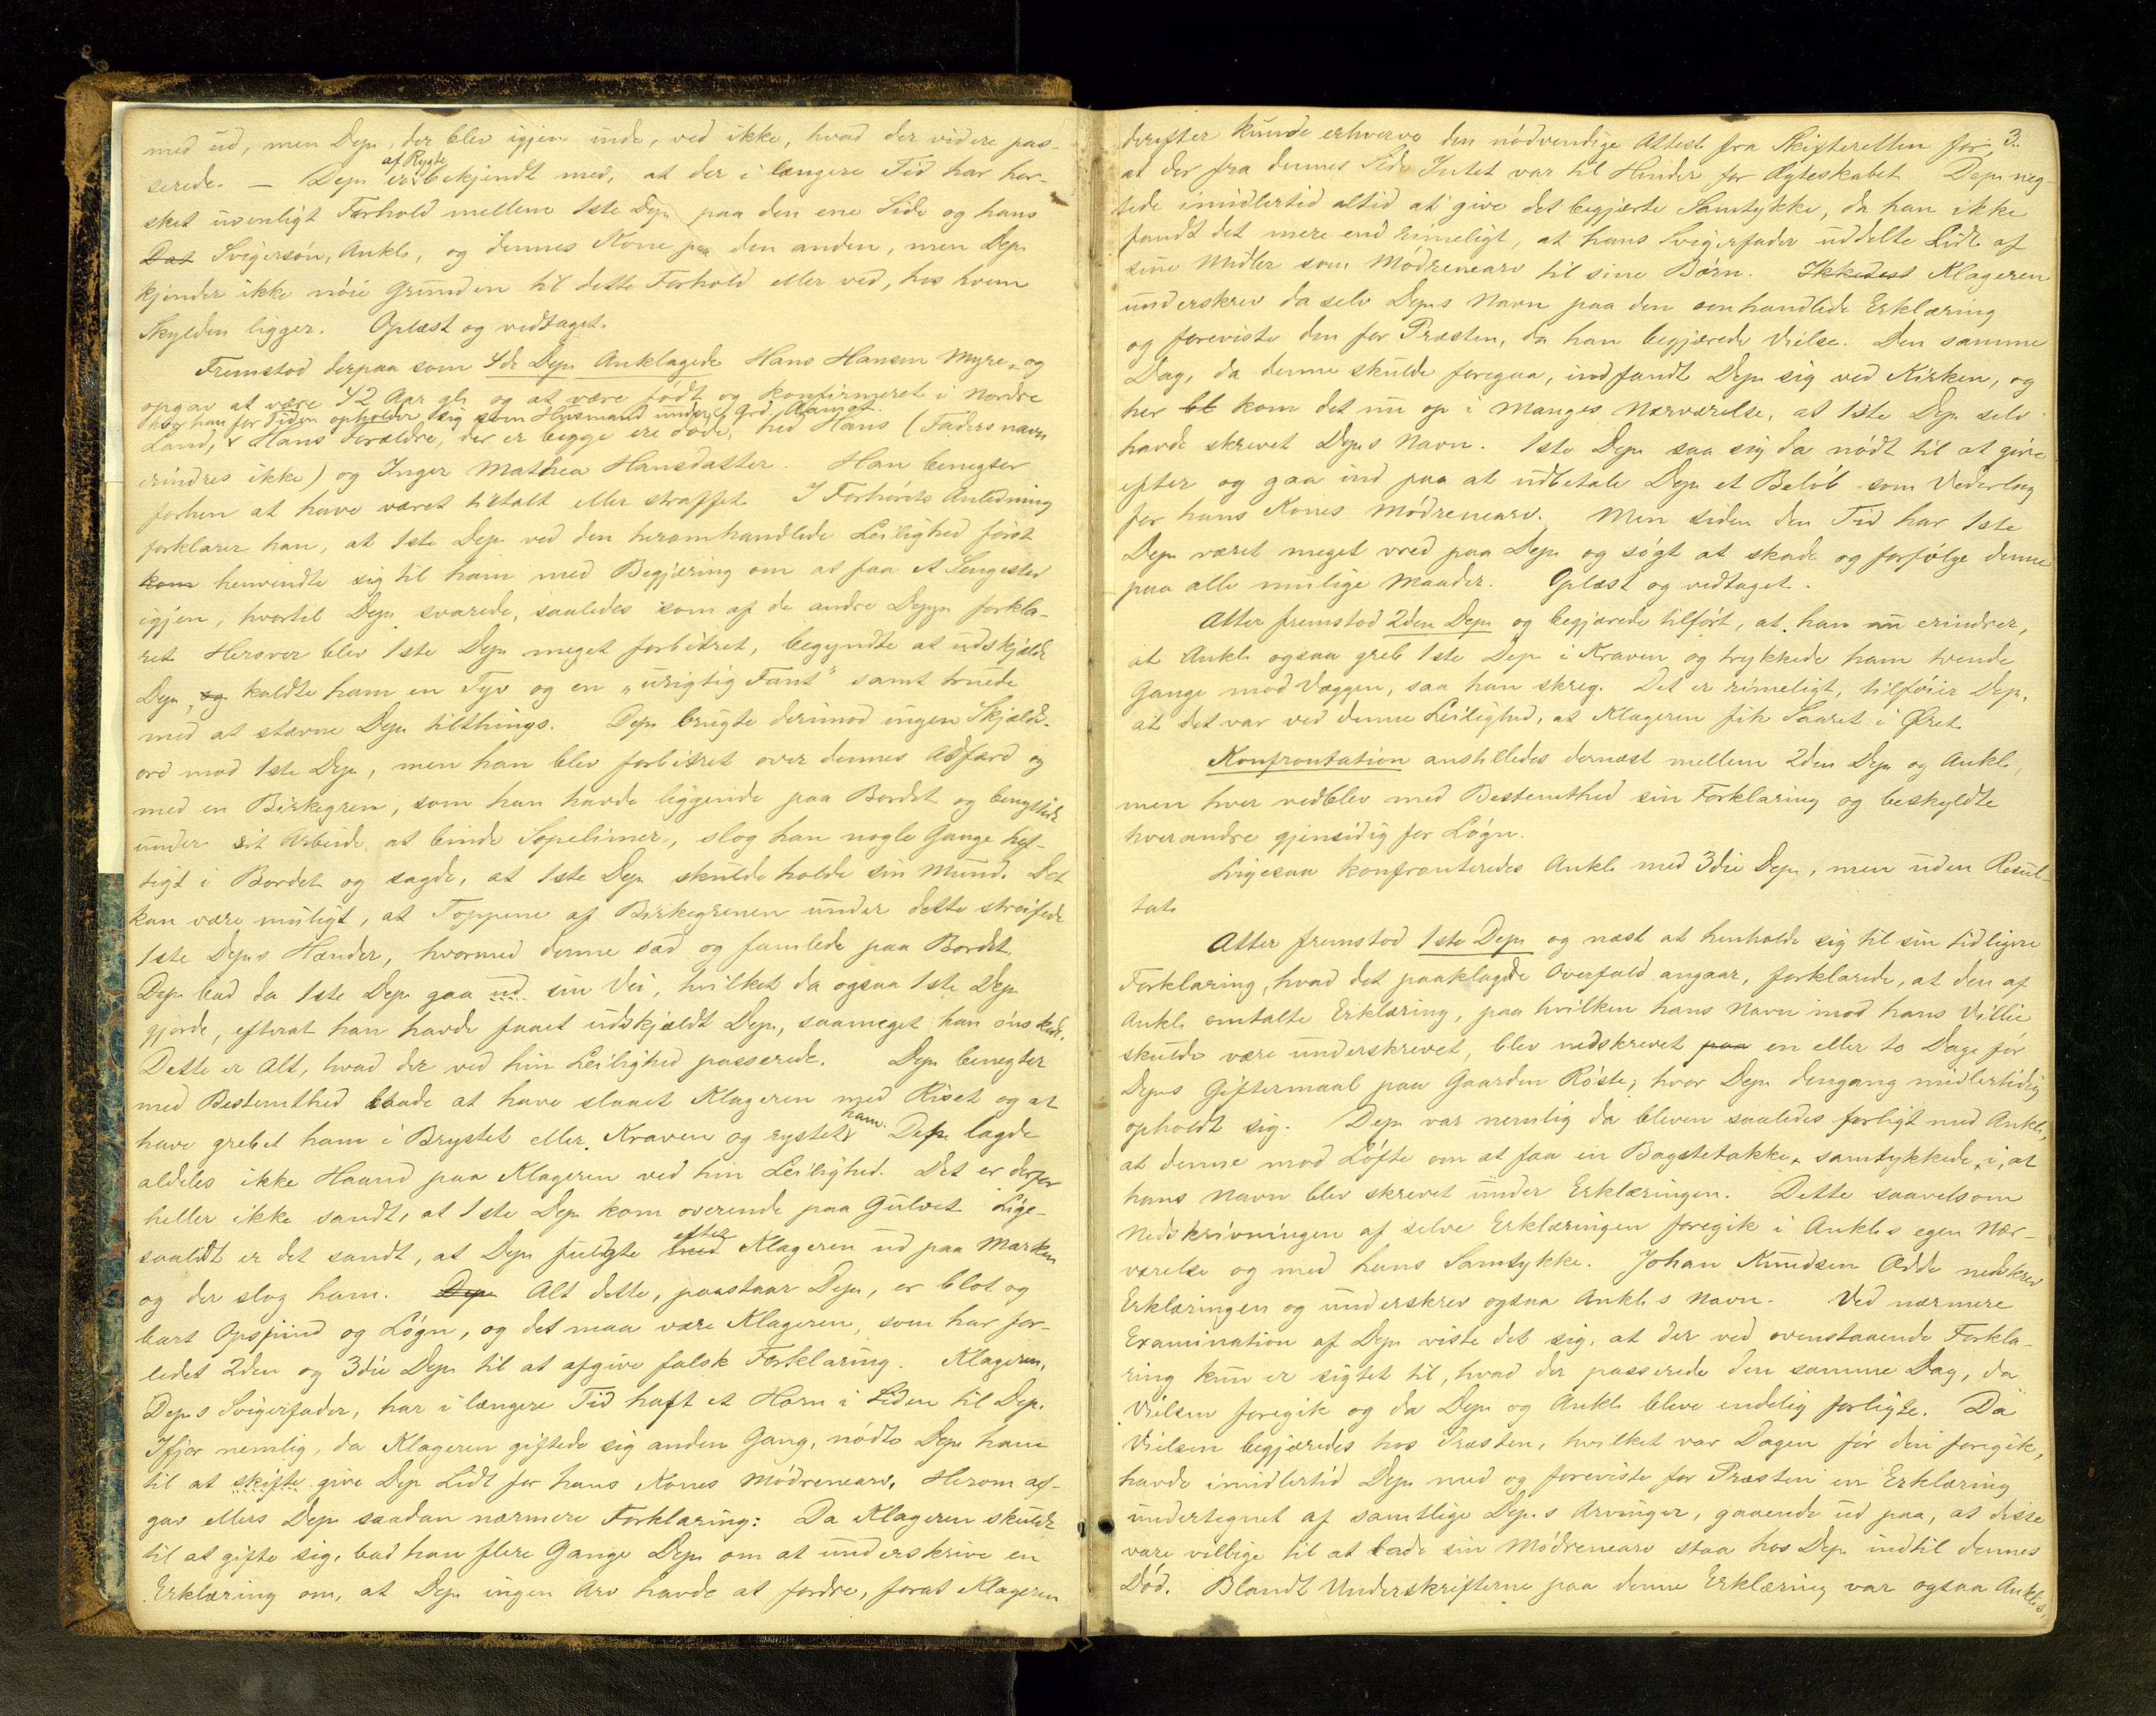 med ud, men Dep., der blev igjen inde, ved ikke, hvad der videre pas-
serede. — Dep. er af Rygte bekjendt med, at der i længere Tid har her-
sket uvenligt Forhold mellem 1ste Dep. paa den ene Side og hans
Svigersøn, Ankl., og dennes Kone paa den anden, men Dep.
kjender ikke nøie Grunden til dette Forhold eller ved, hos hvem
Skylden ligger. Oplæst og vedtaget.
Fremstod derpaa som 4de Dep. Anklagede Hans Hansen Myre, og
opgav at være 42 Aar gl. og at være født og konfirmeret i Nordre
hvor han for Tiden opholder sig som Husmand under Grd.
Land, Hans Forældre, der er begge ere døde, hed Hans (Faders navn
erindres ikke) og Inger Mathea Hansdatter. Han benegter
forhen at have været tiltalt eller straffet. I Forhørets Anledning
forklarer han, at 1ste Dep. ved den heromhandlede Leilighed først
kom henvendte sig til ham med Begjæring om at faa et Sengested
igjen, hvortil Dep. svarede, saaledes som af de andre Depp. forkla-
ret. Herover blev 1ste Dep. meget forbitret, begyndte at udskjælde
Dep., og kaldte ham en Tyv og en „urigtig Fant" samt truede
med at stævne Dep. tilthings. Dep. brugte derimod ingen Skjælds-
ord mod 1ste Dep., men han blev forbitret over dennes Adfærd og
med en Birkegren, som han havde liggende paa Bordet og benyttede
under sit Arbeide, at binde Sopelimer, slog han nogle Gange hef-
tigt i Bordet og sagde, at 1ste Dep. skulde holde sin Mund. Det
kan være muligt, at Toppene af Birkegrenen under dette streifede
1ste Dep.s Hænder, hvormed denne sad og famlede paa Bordet.
Dep. bad da 1ste Dep. gaa ud sin Vei, hvilket da ogsaa 1ste Dep.
gjorde, efterat han havde faaet udskjældt Dep., saameget han ønskede.
Dette er Alt, hvad der ved hin Leilighed passerede. Dep. benegter
med Bestemthed baade at have slaaet Klageren med Riset og at
have grebet ham i Brystet eller Kraven og rystet ham. Dep. lagde
aldeles ikke Haand paa Klageren ved hin Leilighed. Det er derfor
heller ikke sandt, at 1ste Dep. kom overende paa Gulvet. Lige-
saalidt er det sandt, at Dep. fulgte med efter Klageren ud paa Marken
og der slog ham. Dep. Alt dette, paastaar Dep., er blot og
bart Opspind og Løgn, og det maa være Klageren, som har for-
ledet 2den og 3die Dep. til at afgive falsk Forklaring. Klageren,
Dep.s Svigerfader, har i længere Tid haft et Horn i Siden til Dep.
Ifjor nemlig, da Klageren giftede sig anden Gang, nødte Dep. ham
til at skifte give Dep. Lidt for hans Kones Mødrenearv. Herom af-
gav ellers Dep. saadan nærmere Forklaring: Da Klageren skulde
til at gifte sig, bad han flere Gange Dep. om at underskrive en
Erklæring om, at Dep. ingen Arv havde at fordre, forat Klageren
3.
derefter kunde erhverve den nødvendige Attest fra Skifteretten for,
at der fra dennes Side Intet var til Hinder for Ægteskabet. Dep. neg-
tede imidlertid altid at give det begjærte Samtykke, da han ikke
fandt det mere end rimeligt, at hans Svigerfader uddelte Lidt af
sine Midler som Mødrenearv til sine Børn. Ikkedest Klageren
underskrev da selv Dep.s Navn paa den omhandlede Erklæring
og foreviste den for Præsten, da han begjærede Vielse. Den samme
Dag, da denne skulde foregaa, indfandt Dep. sig ved Kirken, og
her bl kom det nu op i Manges Nærværelse, at 1ste Dep. selv
havde skrevet Dep.s Navn. 1ste Dep. saa sig da nødt til at give
efter og gaa ind paa at udbetale Dep. et Beløb som Vederlag
for hans Kones Mødrenearv. Men siden den Tid har 1ste
Dep. været meget vred paa Dep. og søgt at skade og forfølge denne
paa alle mulige Maader. Oplæst og vedtaget.
Atter fremstod 2den Dep. og begjærede tilført, at han nu erindrer,
at Ankl. ogsaa greb 1ste Dep. i Kraven og trykkede ham tvende
Gange mod Væggen, saa han skreg. Det er rimeligt, tilføier Dep.,
at det var ved denne Leilighed, at Klageren fik Saaret i Øret.
Konfrontation anstilledes dernæst mellem 2den Dep. og Ankl.,
men hver vedblev med Bestemthed sin Forklaring og beskyldte
hverandre gjensidig for Løgn.
Ligesaa konfronteredes Ankl. med 3die Dep., men uden Resul-
tat.
Atter fremstod 1ste Dep. og næst at henholde sig til sin tidligere
Forklaring, hvad det paaklagede Overfald angaar, forklarede, at den af
Ankl. omtalte Erklæring, paa hvilken hans Navn mod hans Villie
skulde være underskrevet, blev nedskrevet paa en eller to Dage før
Dep.s Giftermaal paa Gaarden Røste, hvor Dep. dengang midlertidig
opholdt sig. Dep. var nemlig da bleven saaledes forligt med Ankl.,
at denne mod Løfte om at faa en Bagstetakke, samtykkede i, at
hans Navn blev skrevet under Erklæringen. Dette saavelsom
Nedskrivningen af selve Erklæringen foregik i Ankl.s egen Nær-
værelse og med hans Samtykke. Johan Knudsen Odde nedskrev
Erklæringen og underskrev ogsaa Ankl.s Navn. Ved nærmere
Examination af Dep. viste det sig, at der ved ovenstaaende Forkla-
ring kun er sigtet til, hvad der passerede den samme Dag, da
Vielsen foregik og da Dep. og Ankl. bleve endelig forligte. Da
Vielsen begjæredes hos Præsten, hvilket var Dagen før den foregik,
havde imidlertid Dep. med og foreviste for Præsten en Erklæring
undertegnet af samtlige Dep.s Arvinger, gaaende ud paa, at disse
vare villige til at lade sin Mødrenearv staa hos Dep. indtil dennes
Død. Blandt Underskrifterne paa denne Erklæring var ogsaa Ankl.s,